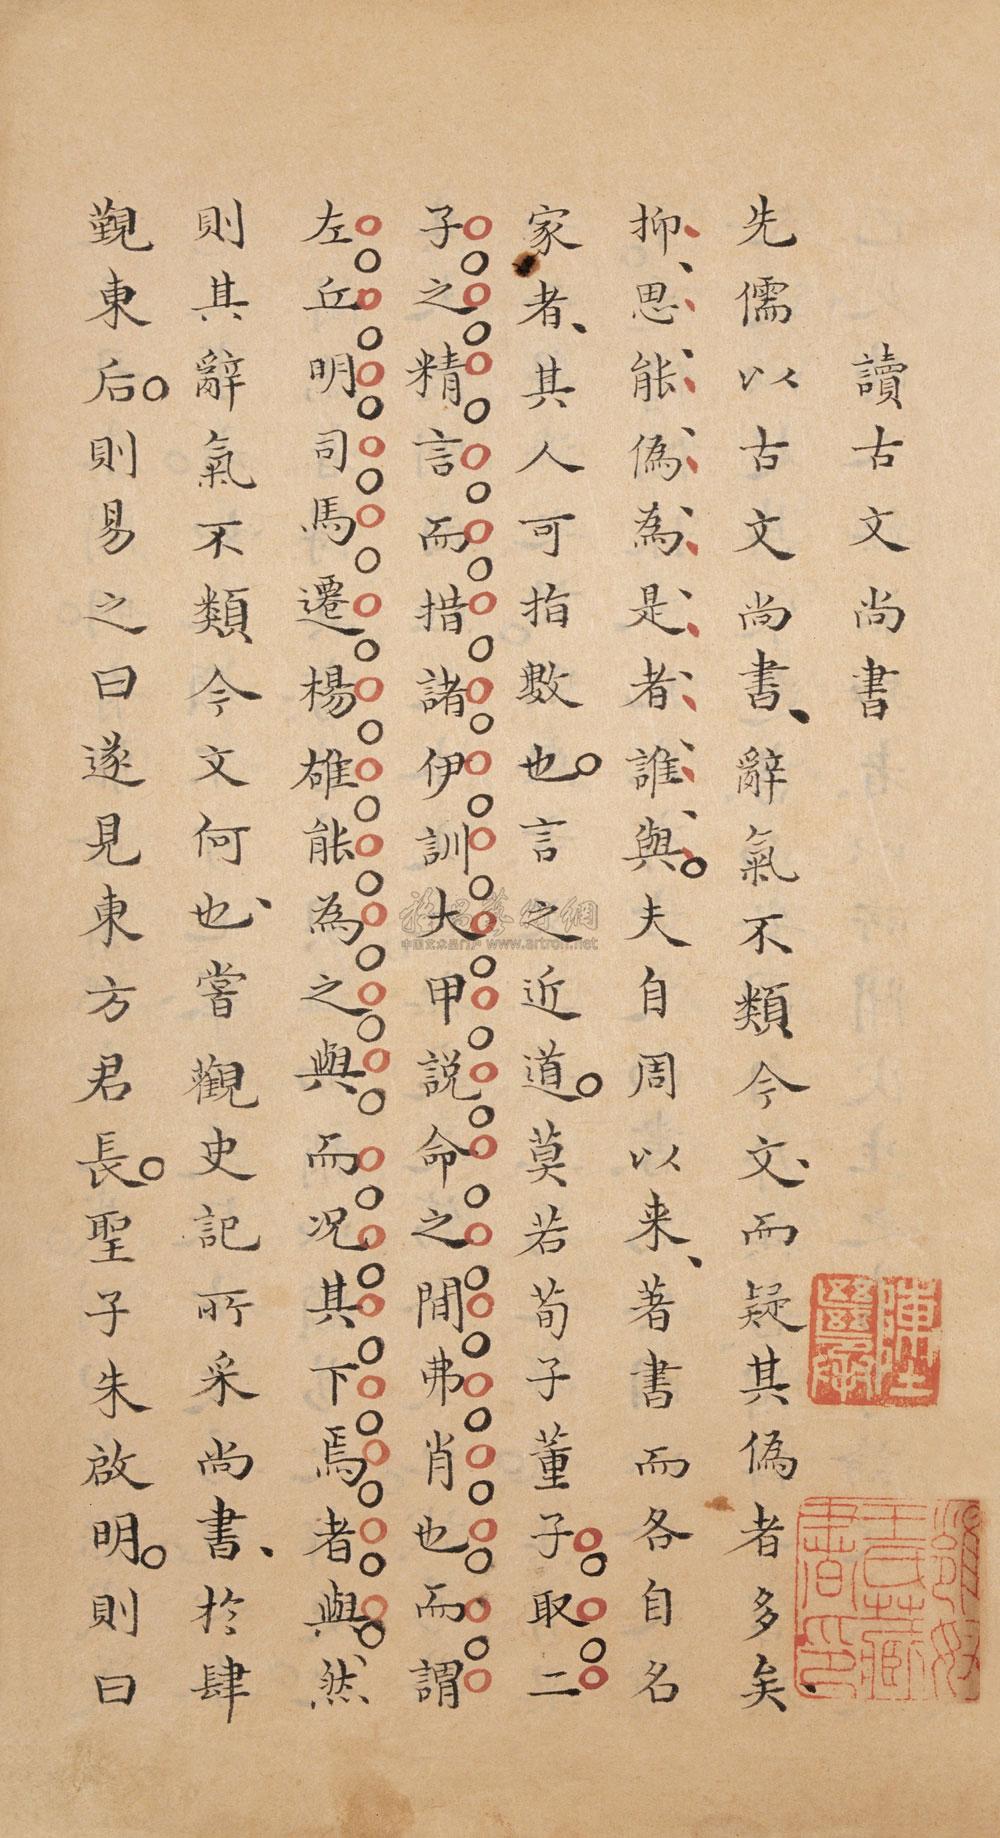 讀古文尚書
先儒以古文尚書辭氣不類今文而疑其偽者多矣
抑思能偽為是者誰與夫自周以来著書而各自名
家者其人可指數也言之近道莫若荀子董子取二
子之精言而措諸伊訓大甲說命之閒弗肖也而謂
左丘明司馬遷楊雄能為之與而況其下焉者與然
則其辭氣不類今文何也嘗觀史記所采尚書於肆
覲東后則易之曰遂見東方君長聖子朱啟明則曰